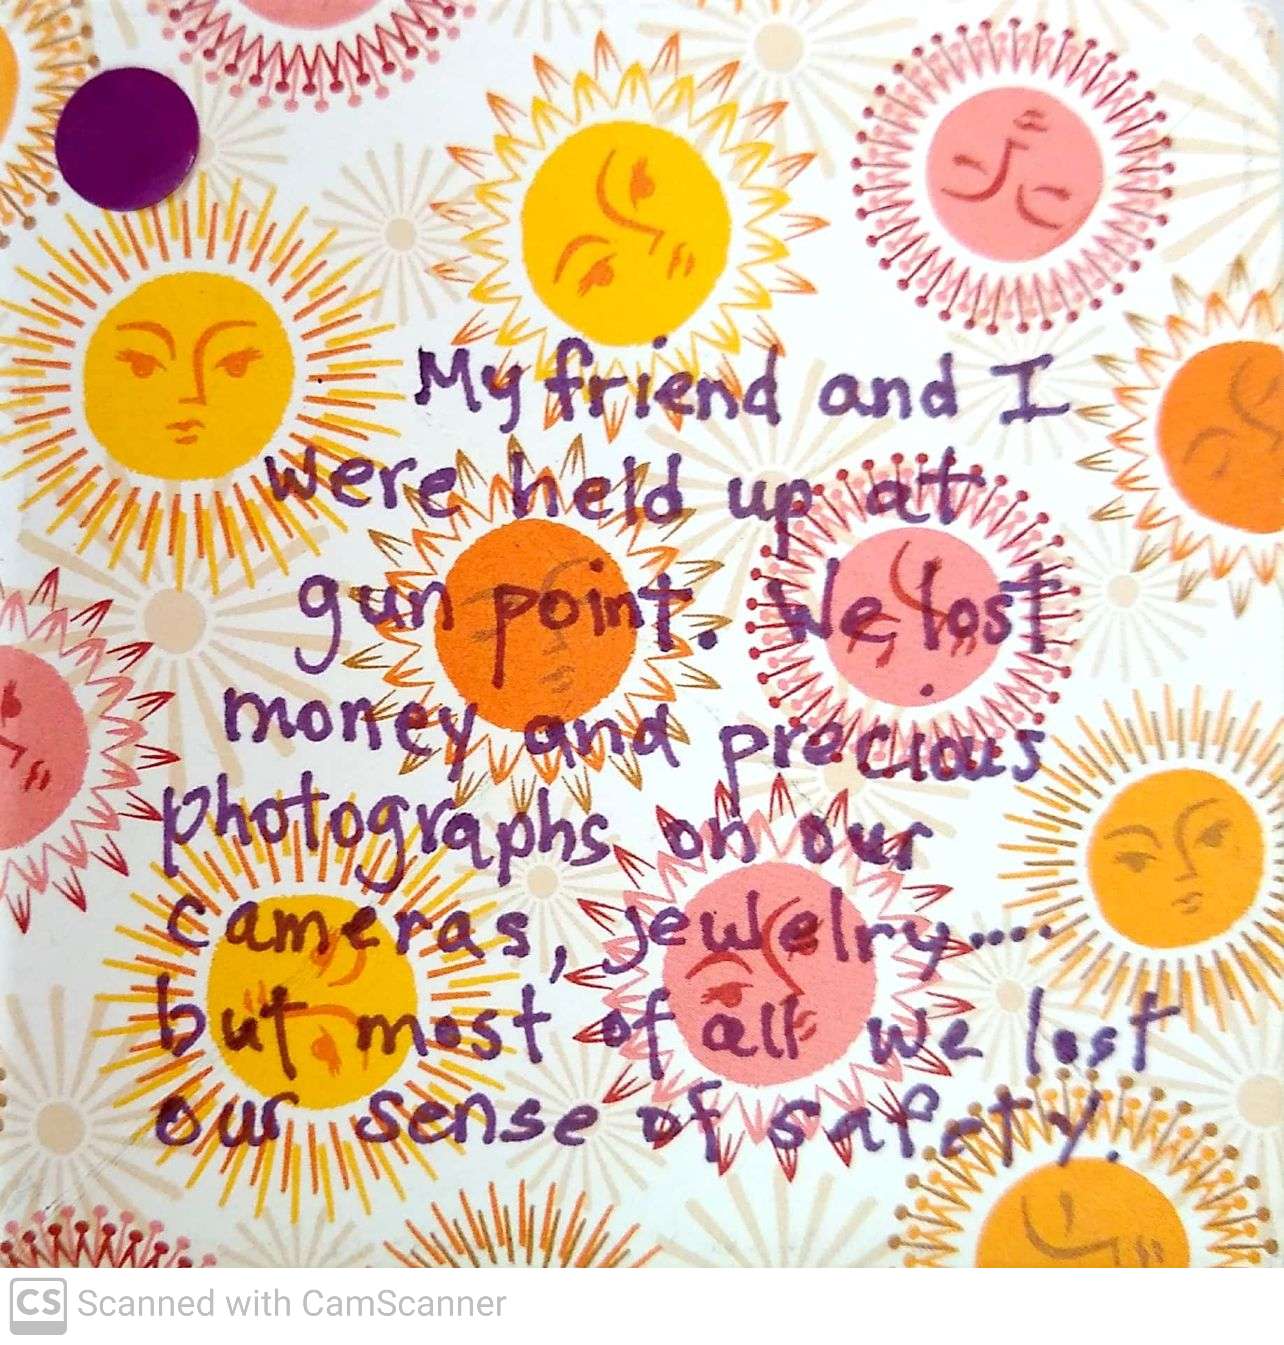 My friend and I
were held up at
gun point. We lost
money and precious
photographs on our
cameras, jewelry....
but most of all we lost
our sense of safety.
CS Scanned with CamScanner